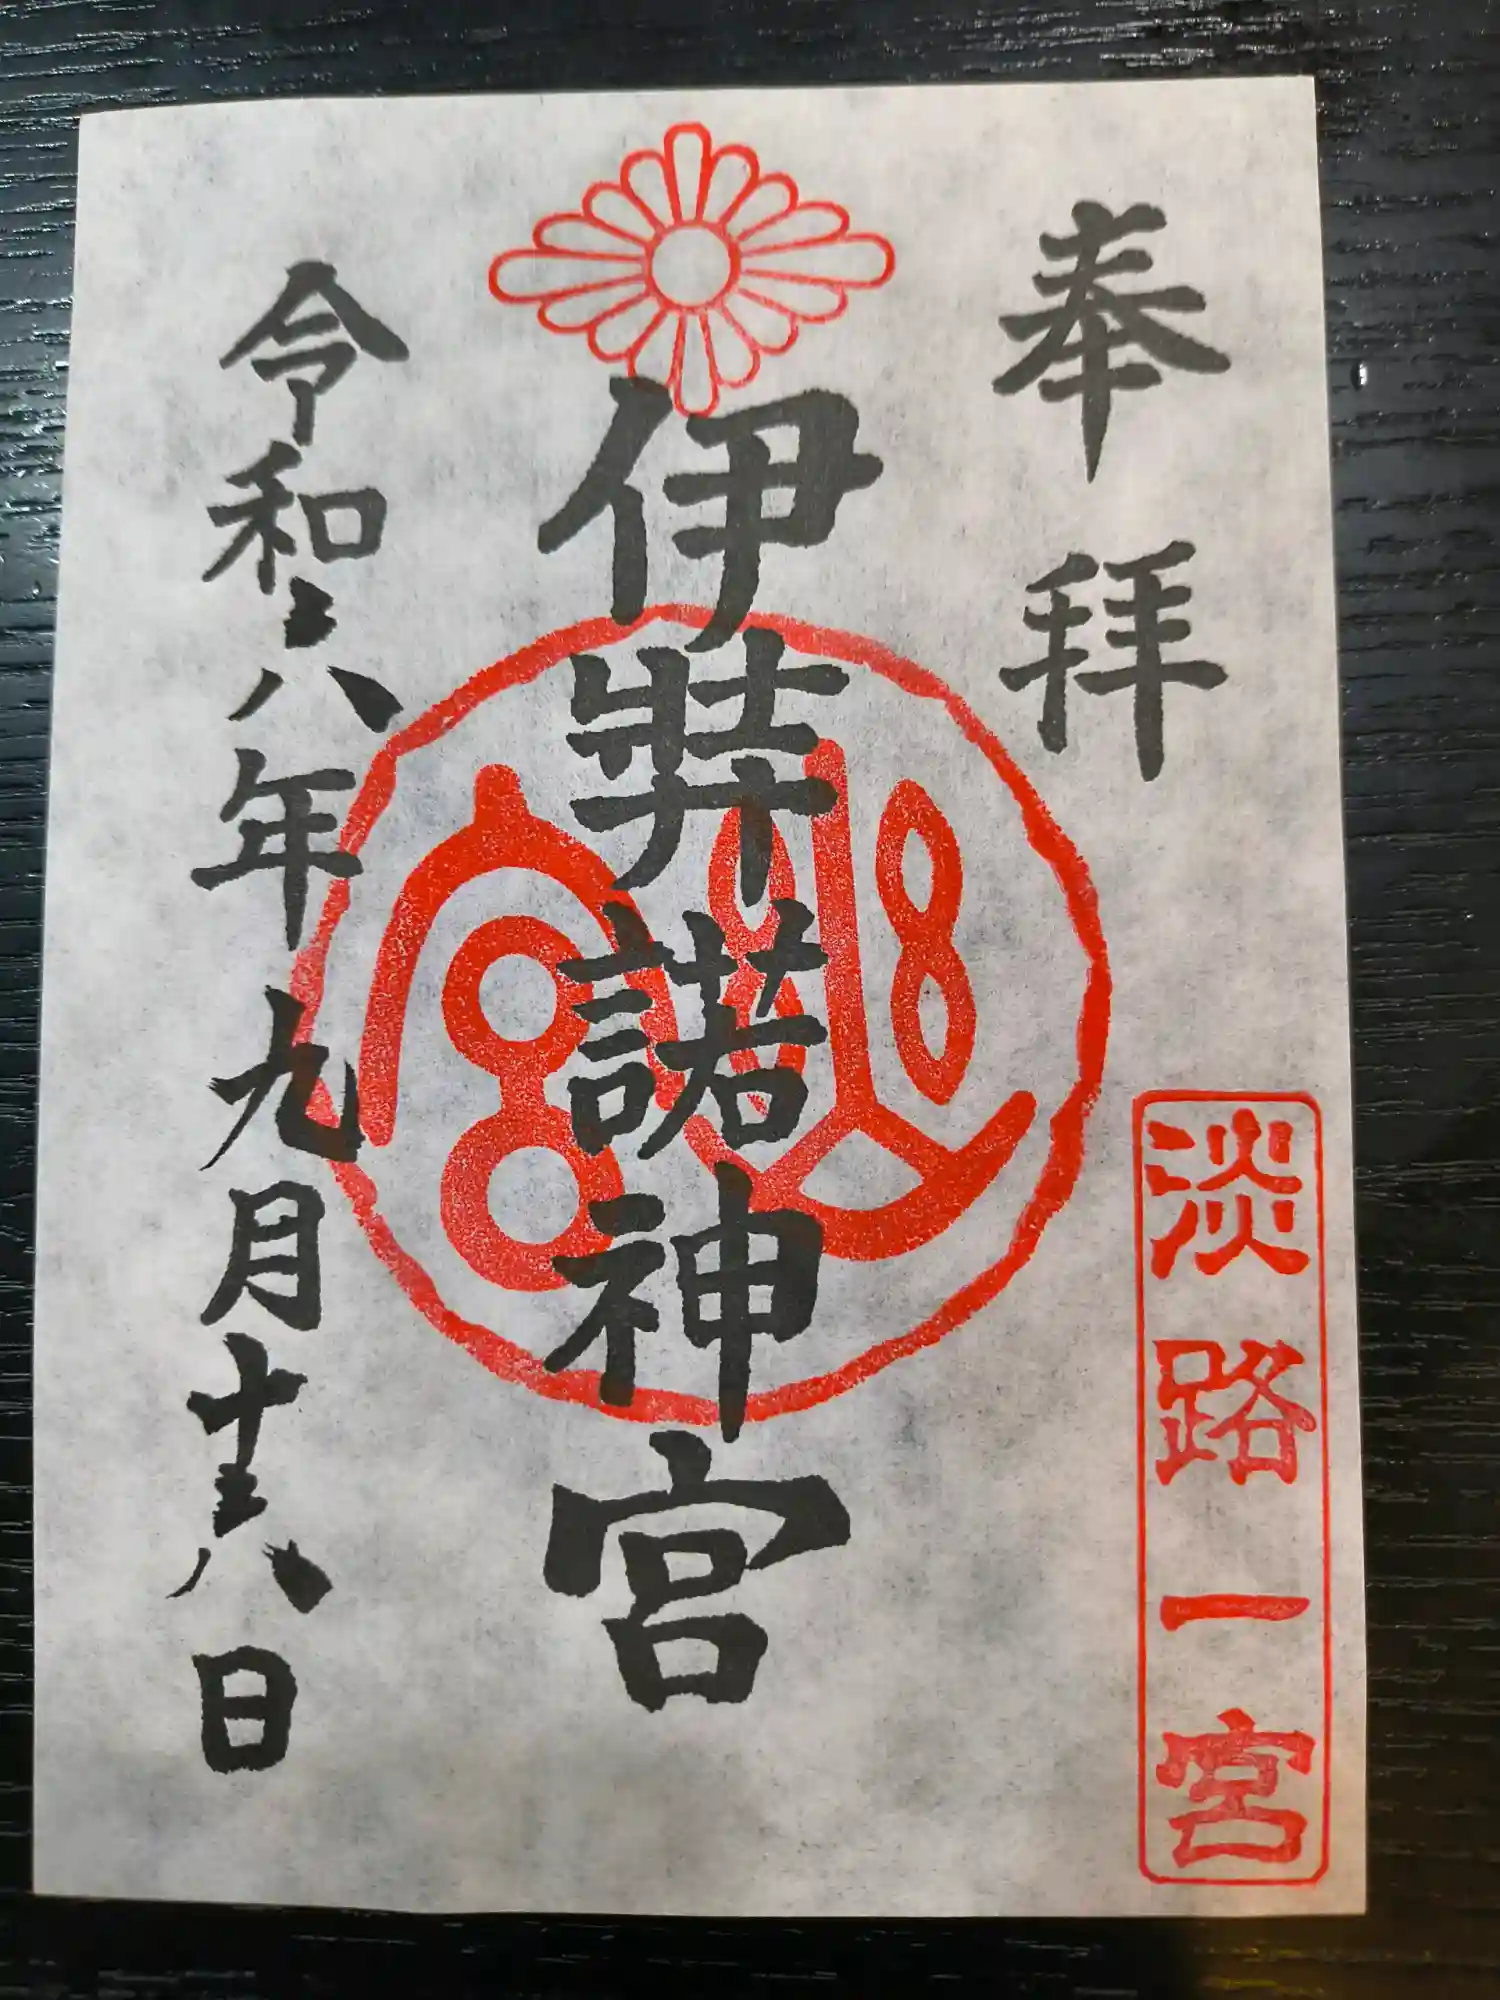 奉拝
淡路一宮
伊弉諾神宮
令和六年九月十六日